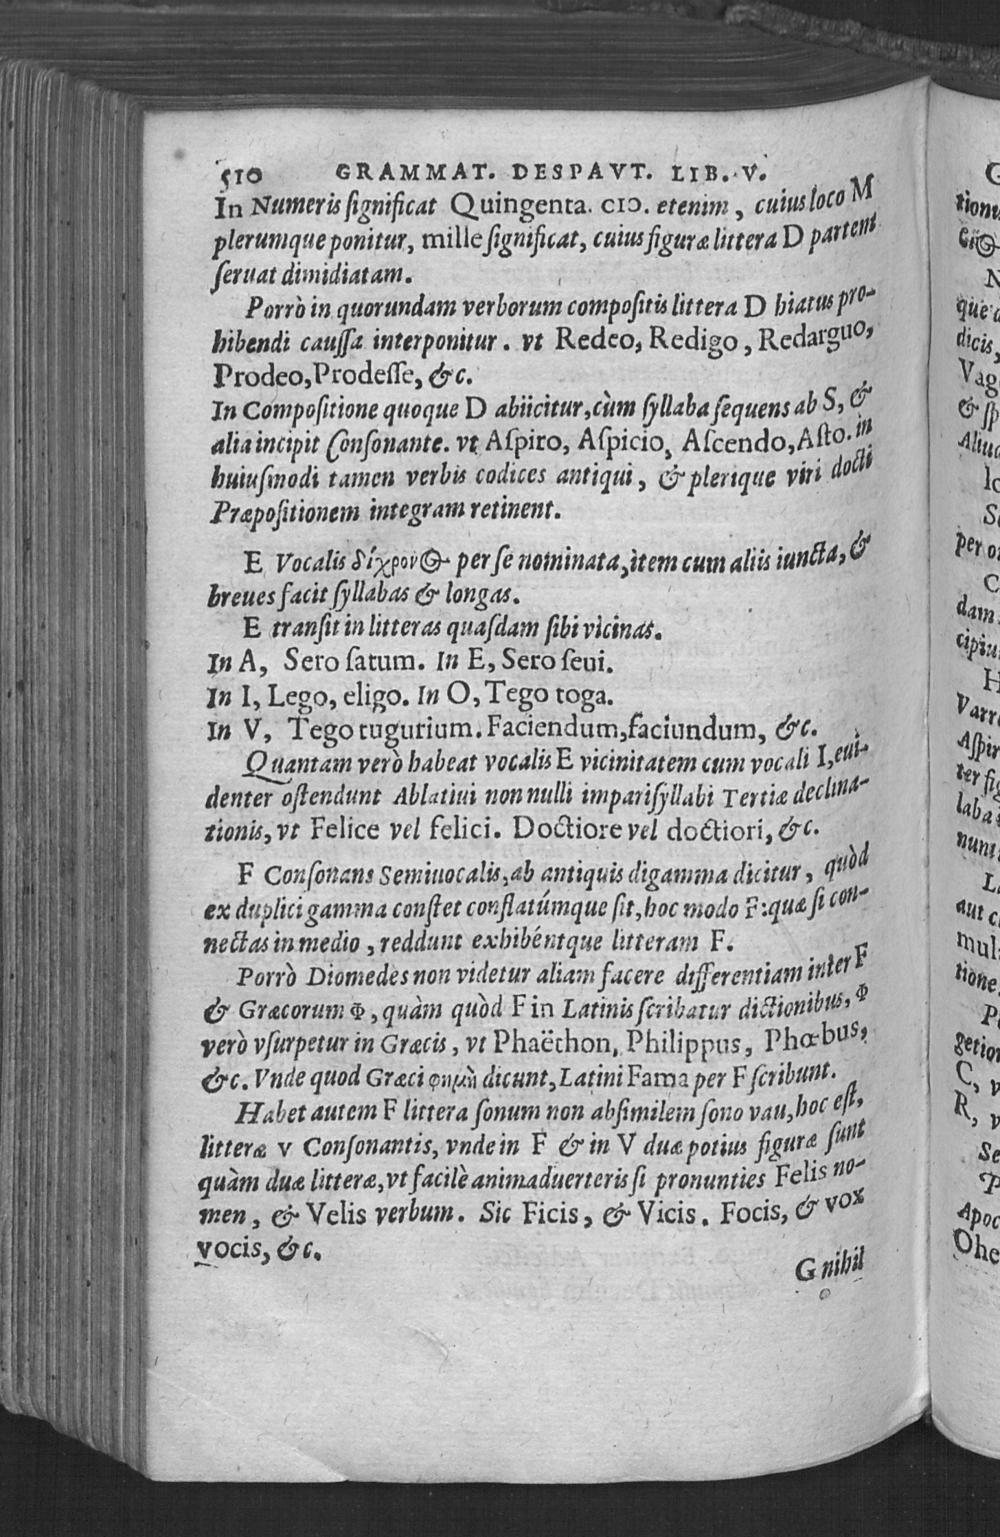 510 GRAMMAT. DESPAVT. LIB. V.
In Numeris ſignificat Quingenta. CIↃ. etenim, cuius loco M
plerumque ponitur, mille ſignificat, cuius figuræ littera D partem
ſeruat dimidiatam.
Porrò in quorundam verborum compoſitis littera D hiatus pro-
hibendi cauſſa interponitur. vt Redeo, Redigo, Redarguo,
Prodeo, Prodeſſe, &c.
In Compoſitione quoque D abiicitur, cùm ſyllaba ſequens ab S, &
alia incipit Conſonante. vt Aſpiro, Aſpicio, Aſcendo, Aſto. in
huiuſmodi tamen verbis codices antiqui, & plerique viri docti
Præpoſitionem integram retinent.
E Vocalis δίχρονος per ſe nominata, item cum aliis iuncta, &
breues facit ſyllabas & longas.
E tranſit in litteras quaſdam ſibi vicinas.
In A, Sero ſatum. In E, Sero ſeui.
In I, Lego, eligo. In O, Tego toga.
In V, Tego tugurium. Faciendum, faciundum, &c.
Quantam verò habeat vocalis E vicinitatem cum vocali I, eui-
denter oſtendunt Ablatiui nonnulli impariſyllabi Tertiæ declina-
tionis, vt Felice vel felici. Doctiore vel doctiori, &c.
F Conſonans Semiuocalis, ab antiquis digamma dicitur, quòd
ex duplici gamma conſtet conflatúmque ſit, hoc modo F: quæ ſi con-
nectas in medio, reddunt exhibéntque litteram F.
Porrò Diomedes non videtur aliam facere differentiam inter F
& Græcorum Φ, quàm quòd F in Latinis ſcribatur dictionibus, Φ
verò vſurpetur in Græcis, vt Phaëthon, Philippus, Phœbus,
&c. Vnde quod Græci φημὴ dicunt, Latini Fama per F ſcribunt.
Habet autem F littera ſonum non abſimilem ſono vau, hoc eſt,
litteræ v Conſonantis, vnde in F & in V duæ potius figuræ ſunt
quàm duæ litteræ, vt facilè animaduerteris ſi pronunties Felis no-
men, & Velis verbum. Sic Ficis, & Vicis. Focis, & vox
vocis, &c.
G nihil